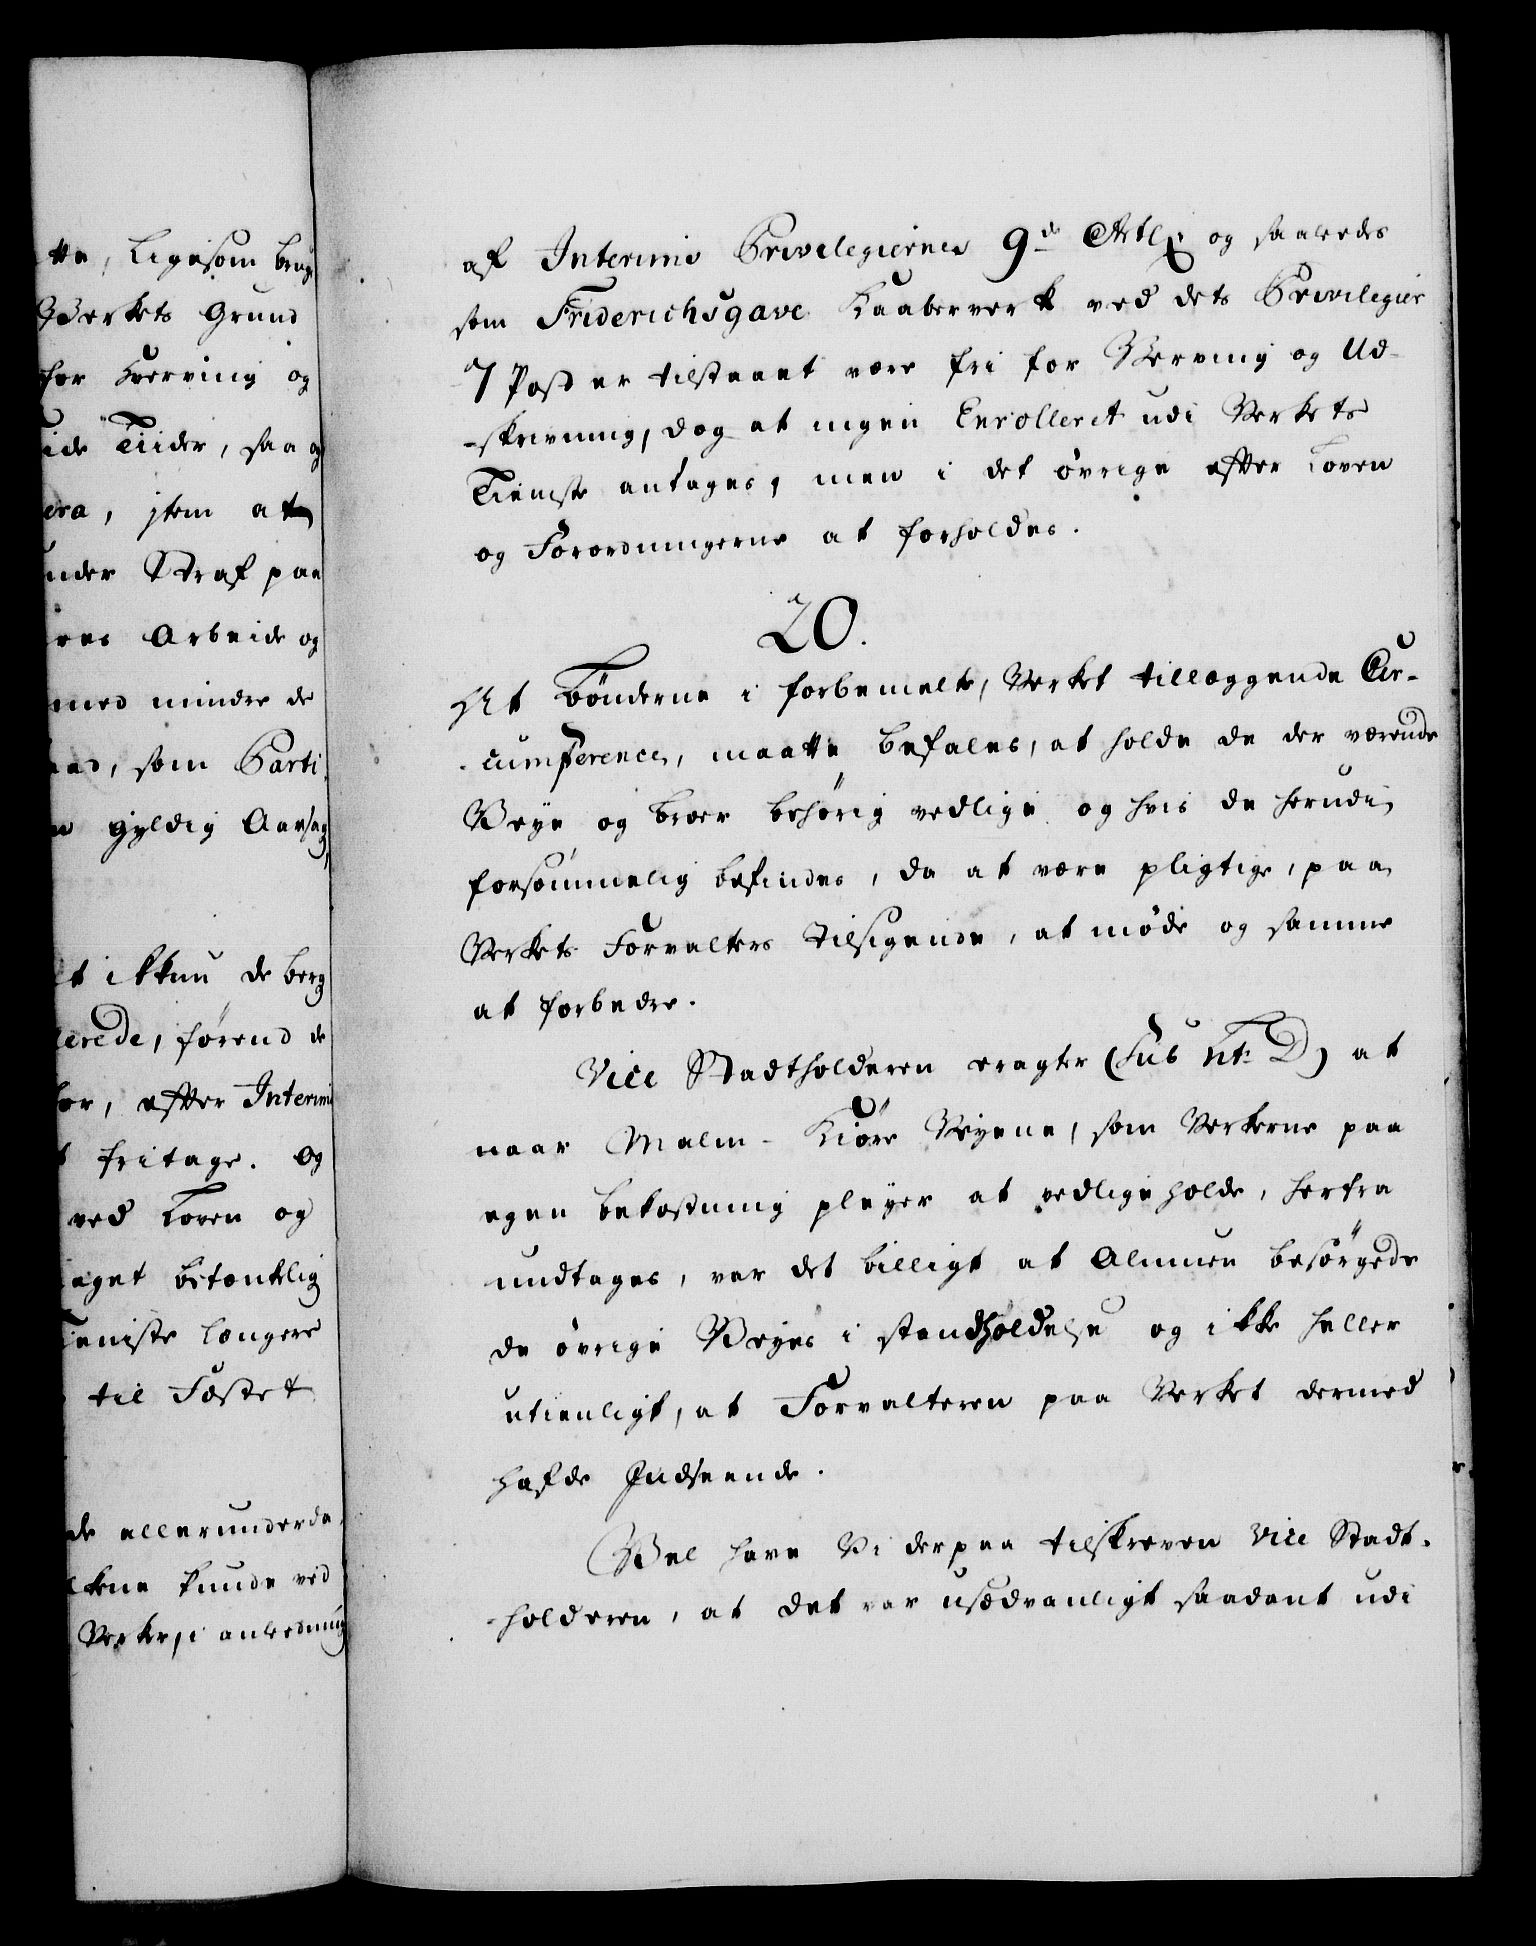 tte, Ligesom brug
Werkets Grund
for Hverving og
ide Tiider, saa og
era, jtem at
under Straf paa
eres Arbeide og
med mindre de
som Parti
gyldig Aarsag,
ikkun de berg
erede, førend de
for, efter Interims
fritage. Og
ved Loven og
aget betænkelig
Tieniste længere
til Fæstet
de allerunderda
kunde ved
Verker, i anledning
af Interims Privilegiernes 9de Artl: og saaledes
som Friderichsgave Kaaberverk ved dets Privilegier
7 Post er tilstaaet være fri for Werving og Ud-
-skrivning, dog at ingen Enrolleret udi Verkets
Tieniste antages, men i det øvrige efter Loven
og Forordningerne at forholdes.
20.
At Bønderne i forbemelte, Verket tillæggende Cir-
-cumference, maatte befales, at holde de der værende
Veye og broer behørig vedlige og hvis de herudi
forsømmelig befindes, da at være pligtige, paa
Verkets Forvalters Tilsigende, at møde og samme
at forbedre.
Vice Stadtholderen eragter (Sub Litr: D) at
naar Malm-Kiøre Veyene, som Verkerne paa
egen bekostning pleyer at vedligeholde, herfra
undtages, var det billigt at Almuen besørgede
de øvrige Veyes i standholdelse og ikke heller
utienligt, at Forvalteren paa Verket dermed
hafde Indseende.
Vel have Vi derpaa tilskreven Vice Stadt-
-holderen, at det var usædvanligt saadant udi